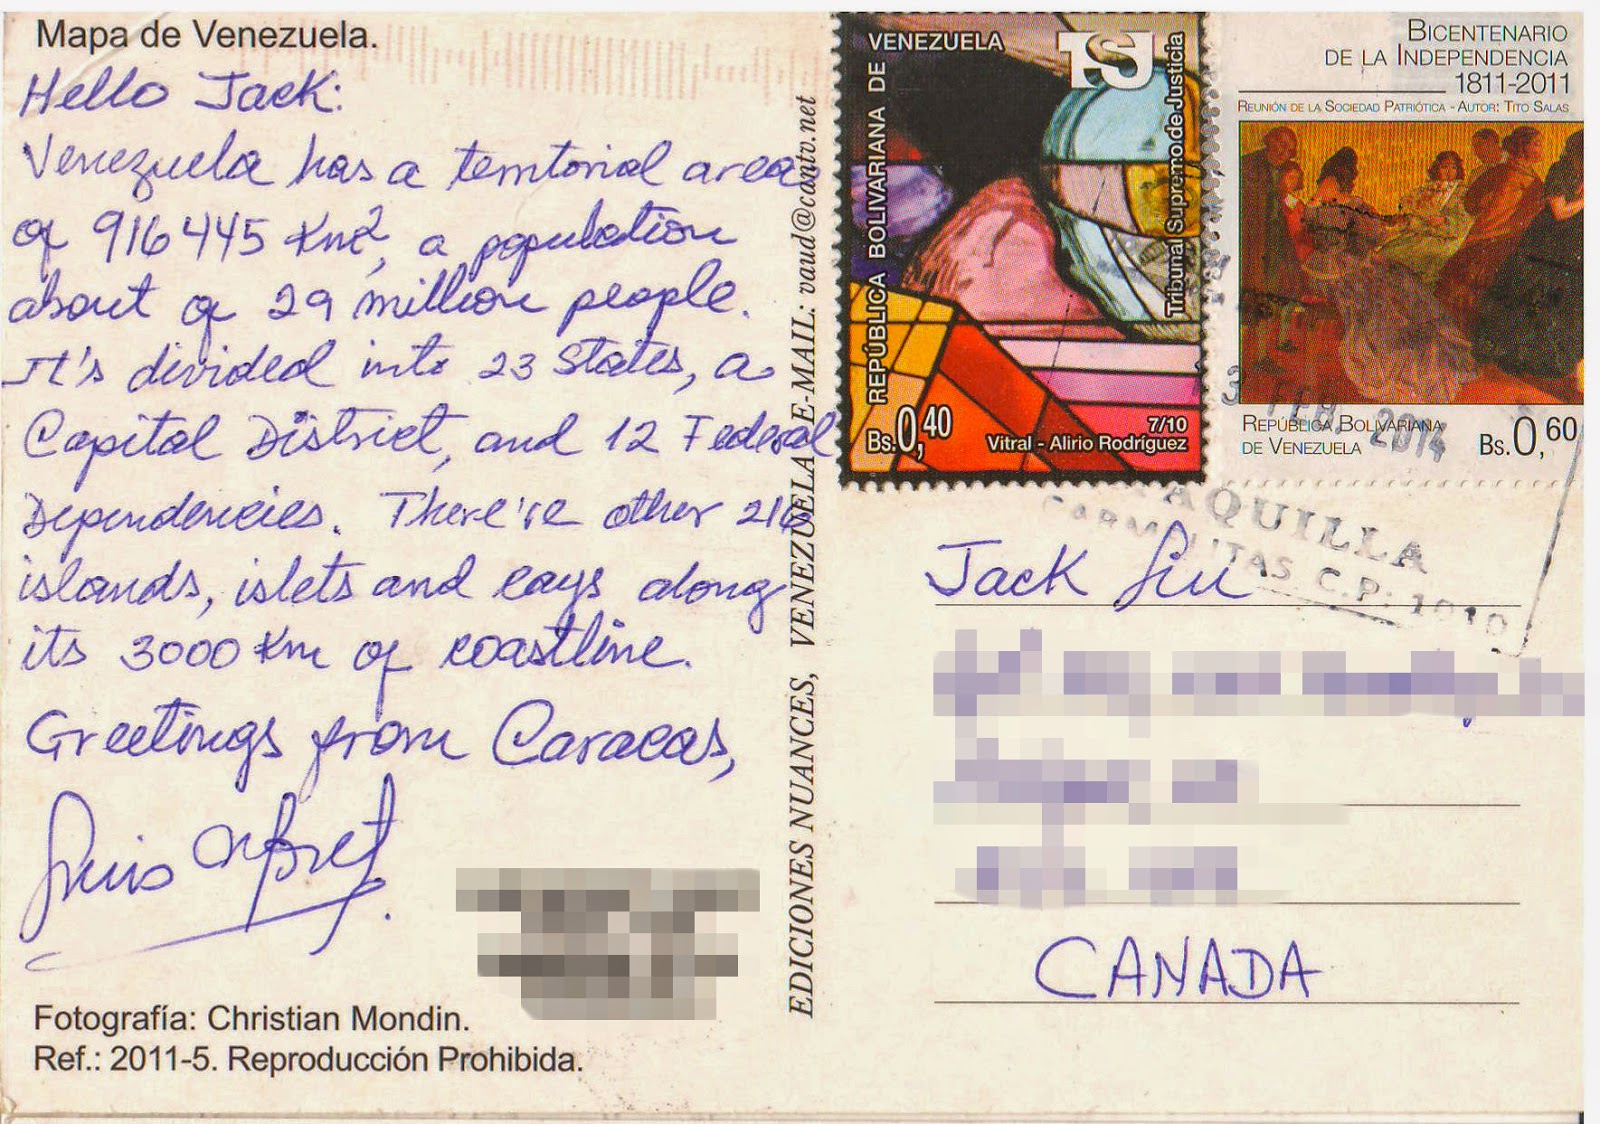 Mapa de Venezuela.
Hello Jack:
Venezuela has a territorial area
of 916445 Km², a population
about of 29 million people.
It's divided into 23 States, a
Capital District, and 12 Federal
Dependencies. There're other 216
islands, islets and cays along
its 3000 Km of coastline.
Greetings from Caracas,
Luis
Fotografía: Christian Mondin.
Ref.: 2011-5. Reproducción Prohibida.
EDICIONES NUANCES, VENEZUELA E-MAIL: vaud@cantv.net
REPÚBLICA BOLIVARIANA DE
VENEZUELA
TSJ
Tribunal Supremo de Justicia
Bs.0,40
7/10
Vitral - Alirio Rodríguez
BICENTENARIO
DE LA INDEPENDENCIA
1811-2011
REUNIÓN DE LA SOCIEDAD PATRIÓTICA - AUTOR: TITO SALAS
REPÚBLICA BOLIVARIANA
DE VENEZUELA
Bs.0,60
3 FEB. 2014
TAQUILLA
CARMELITAS C.P. 1010
Jack Liu
CANADA